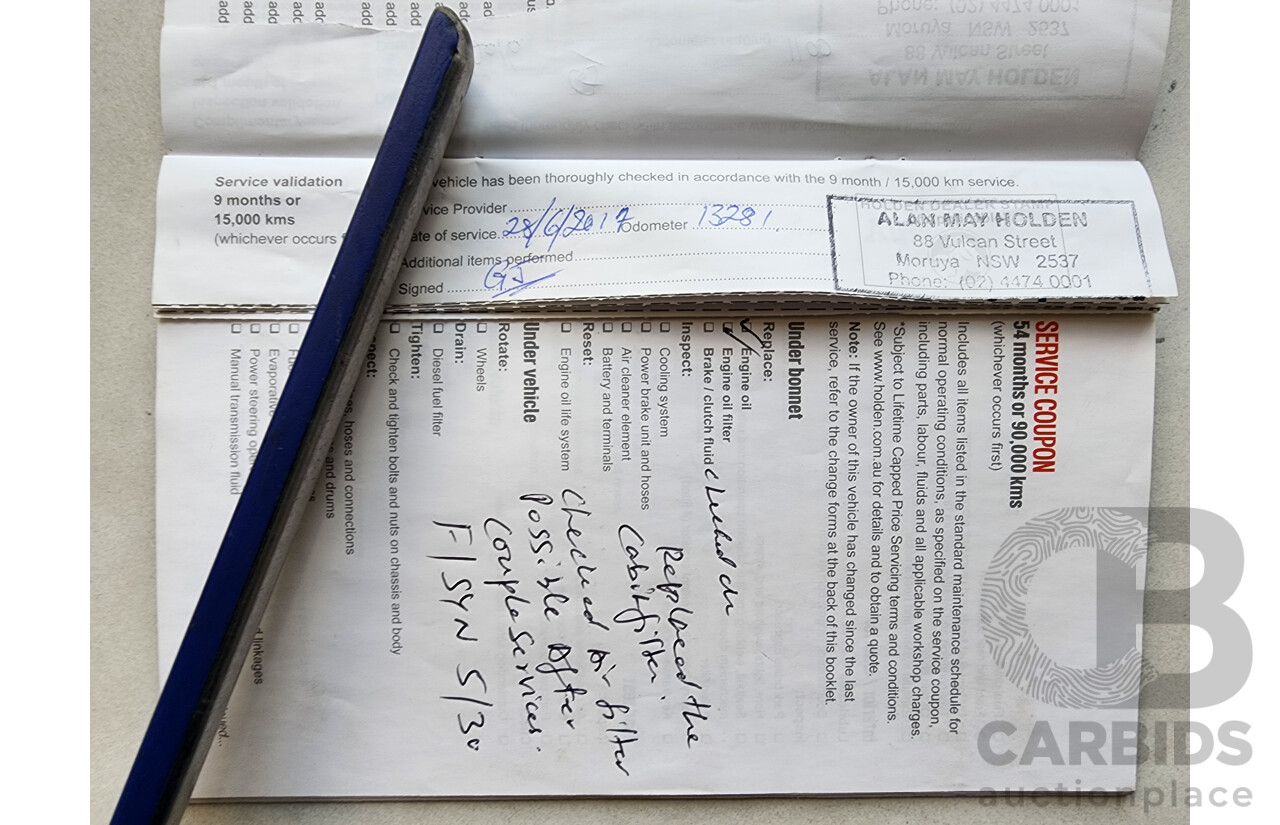 Service validation
9 months or
15,000 kms
(whichever occurs
vehicle has been thoroughly checked in accordance with the 9 month / 15,000 km service.
vice Provider
ate of service 28/6/2017 Odometer 13281
Additional items performed
Signed GJ
HOLDEN DEALER STAMP
ALAN MAY HOLDEN
88 Vulcan Street
Moruya NSW 2537
Phone: (02) 4474 0001
SERVICE COUPON
54 months or 90,000 kms
(whichever occurs first)
Includes all items listed in the standard maintenance schedule for
normal operating conditions, as specified on the service coupon,
including parts, labour, fluids and all applicable workshop charges.
*Subject to Lifetime Capped Price Servicing terms and conditions.
See www.holden.com.au for details and to obtain a quote.
Note: If the owner of this vehicle has changed since the last
service, refer to the change forms at the back of this booklet.
Under bonnet
Replace:
Engine oil
Engine oil filter
Brake / clutch fluid checked
Inspect:
Cooling system
Power brake unit and hoses
Air cleaner element
Battery and terminals
Reset:
Engine oil life system
Replaced the
Cabin filter.
Checked Air filter
Possible After
Couple Services.
F/SYN 5/30
Under vehicle
Rotate:
Wheels
Drain:
Diesel fuel filter
Tighten:
Check and tighten bolts and nuts on chassis and body
pect:
es, hoses and connections
s and drums
Evaporative
Power steering ope
Manual transmission fluid
d linkages
ALAN MAY HOLDEN
88 Vulcan Street
Moruya NSW 2537
Phone: (02) 4474 0001
add
add
add
add
add
add
CARBIDS
auctionplace